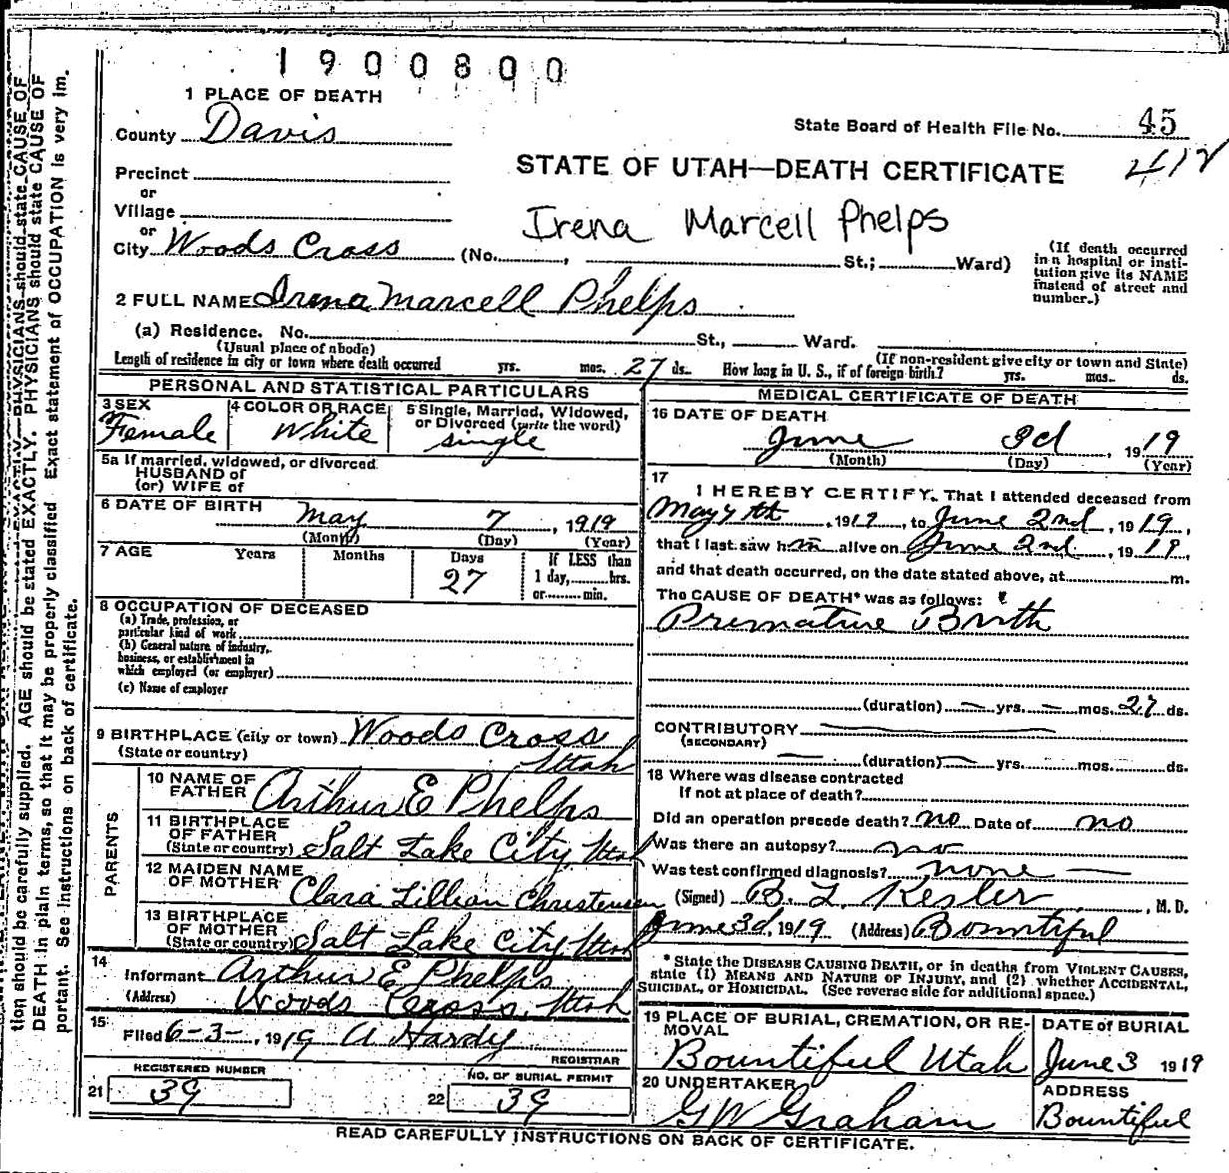 1900800
1 PLACE OF DEATH
County Davis
State Board of Health File No. 45
412
STATE OF UTAH—DEATH CERTIFICATE
Precinct
or
Village
Irena Marcell Phelps
or
City Woods Cross (No. , St.; Ward)
(If death occurred in a hospital or institution give its NAME instead of street and number.)
2 FULL NAME Irena Marcell Phelps
(a) Residence. No. St., Ward.
(Usual place of abode) (If non-resident give city or town and State)
Length of residence in city or town where death occurred yrs. mos. 27 ds. How long in U. S., if of foreign birth? yrs. mos. ds.
PERSONAL AND STATISTICAL PARTICULARS
3 SEX Female
4 COLOR OR RACE White
5 Single, Married, Widowed, or Divorced (write the word) single
5a If married, widowed, or divorced
HUSBAND of
(or) WIFE of
6 DATE OF BIRTH May 7, 1919
(Month) (Day) (Year)
7 AGE Years Months Days 27 If LESS than 1 day, hrs. or min.
8 OCCUPATION OF DECEASED
(a) Trade, profession, or
particular kind of work
(b) General nature of industry,
business, or establishment in
which employed (or employer)
(c) Name of employer
9 BIRTHPLACE (city or town) Woods Cross
(State or country) Utah
PARENTS
10 NAME OF FATHER Arthur E Phelps
11 BIRTHPLACE OF FATHER (State or country) Salt Lake City, Utah
12 MAIDEN NAME OF MOTHER Clara Lillian Christensen
13 BIRTHPLACE OF MOTHER (State or country) Salt Lake City, Utah
14
Informant Arthur E Phelps
(Address) Woods Cross, Utah
15
Filed 6-3-, 1919 A Hardy
REGISTRAR
REGISTERED NUMBER
21 39
NO. OF BURIAL PERMIT
22 39
MEDICAL CERTIFICATE OF DEATH
16 DATE OF DEATH
June 3d, 1919
(Month) (Day) (Year)
17
I HEREBY CERTIFY, That I attended deceased from
May 7th, 1919, to June 2nd, 1919,
that I last saw h alive on June 2nd, 1919,
and that death occurred, on the date stated above, at m.
The CAUSE OF DEATH* was as follows:
Premature Birth
(duration) — yrs. — mos. 27 ds.
CONTRIBUTORY
(SECONDARY)
(duration) yrs. mos. ds.
18 Where was disease contracted
If not at place of death?
Did an operation precede death? no Date of no
Was there an autopsy? no
Was test confirmed diagnosis? none
(Signed) B. L. Kesler, M. D.
June 3d, 1919 (Address) Bountiful
* State the DISEASE CAUSING DEATH, or in deaths from VIOLENT CAUSES,
state (1) MEANS AND NATURE OF INJURY, and (2) whether ACCIDENTAL,
SUICIDAL, OR HOMICIDAL. (See reverse side for additional space.)
19 PLACE OF BURIAL, CREMATION, OR REMOVAL
Bountiful Utah
DATE of BURIAL
June 3 1919
20 UNDERTAKER
G W Graham
ADDRESS
Bountiful
READ CAREFULLY INSTRUCTIONS ON BACK OF CERTIFICATE.
tion should be carefully supplied. AGE should be stated EXACTLY. PHYSICIANS should state CAUSE OF
DEATH in plain terms, so that it may be properly classified. Exact statement of OCCUPATION is very im-
portant. See instructions on back of certificate.